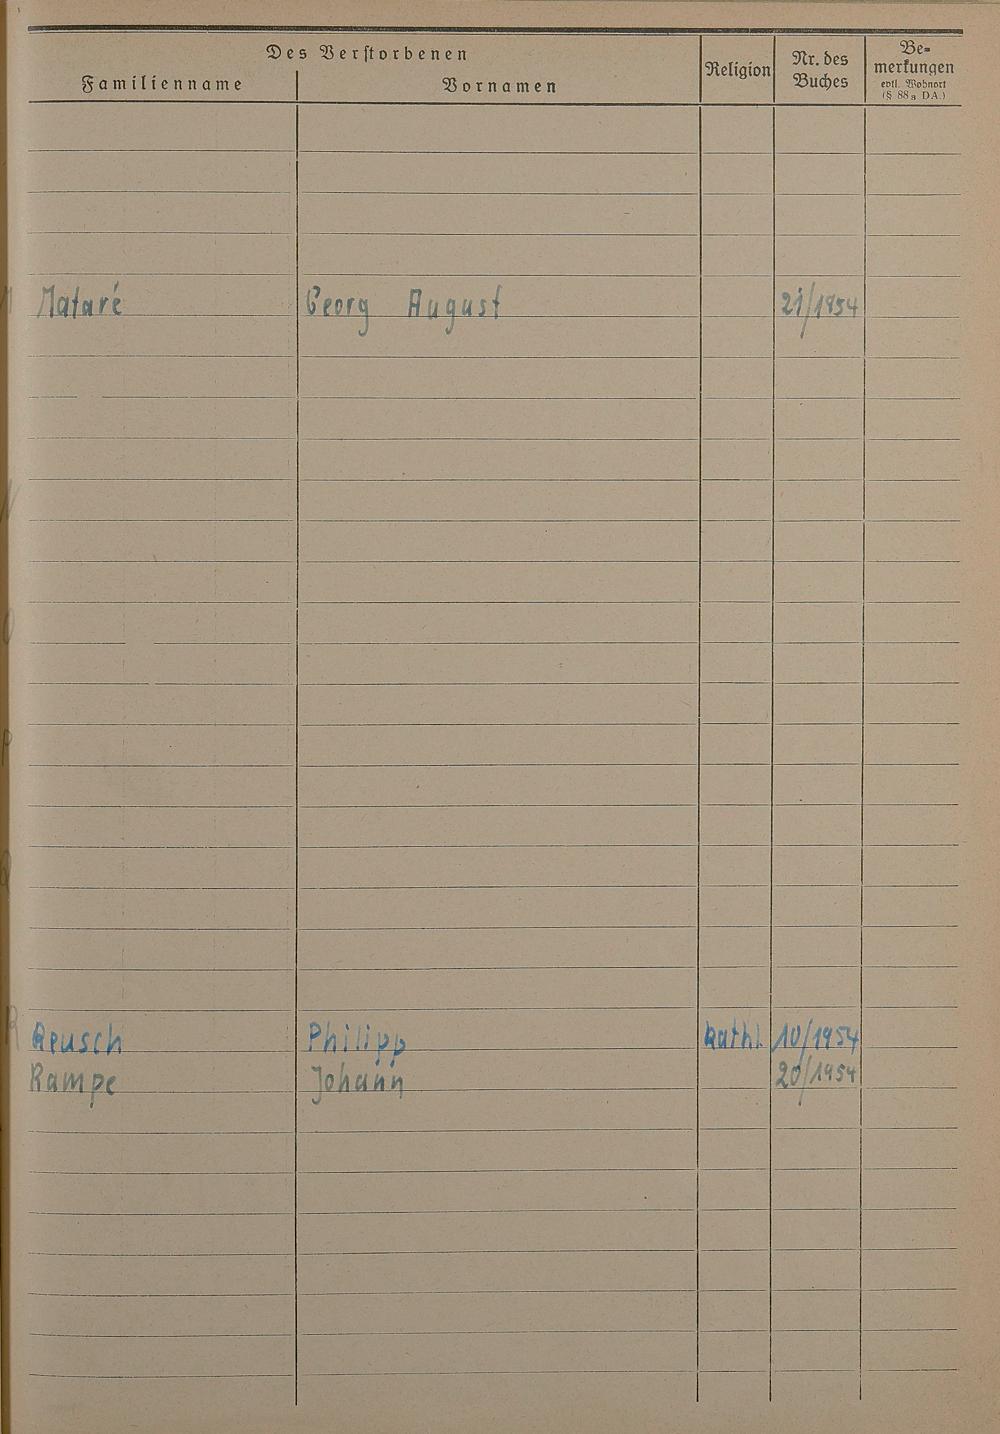 Des Verstorbenen
Familienname Vornamen Religion Nr. des Buches Be-merkungen evtl. Wohnort (§ 88a DA.)
M Mataré Georg August 21/1954
N
O
P
Q
R Reusch Philipp kathl. 10/1954
Rampe Johann 20/1954